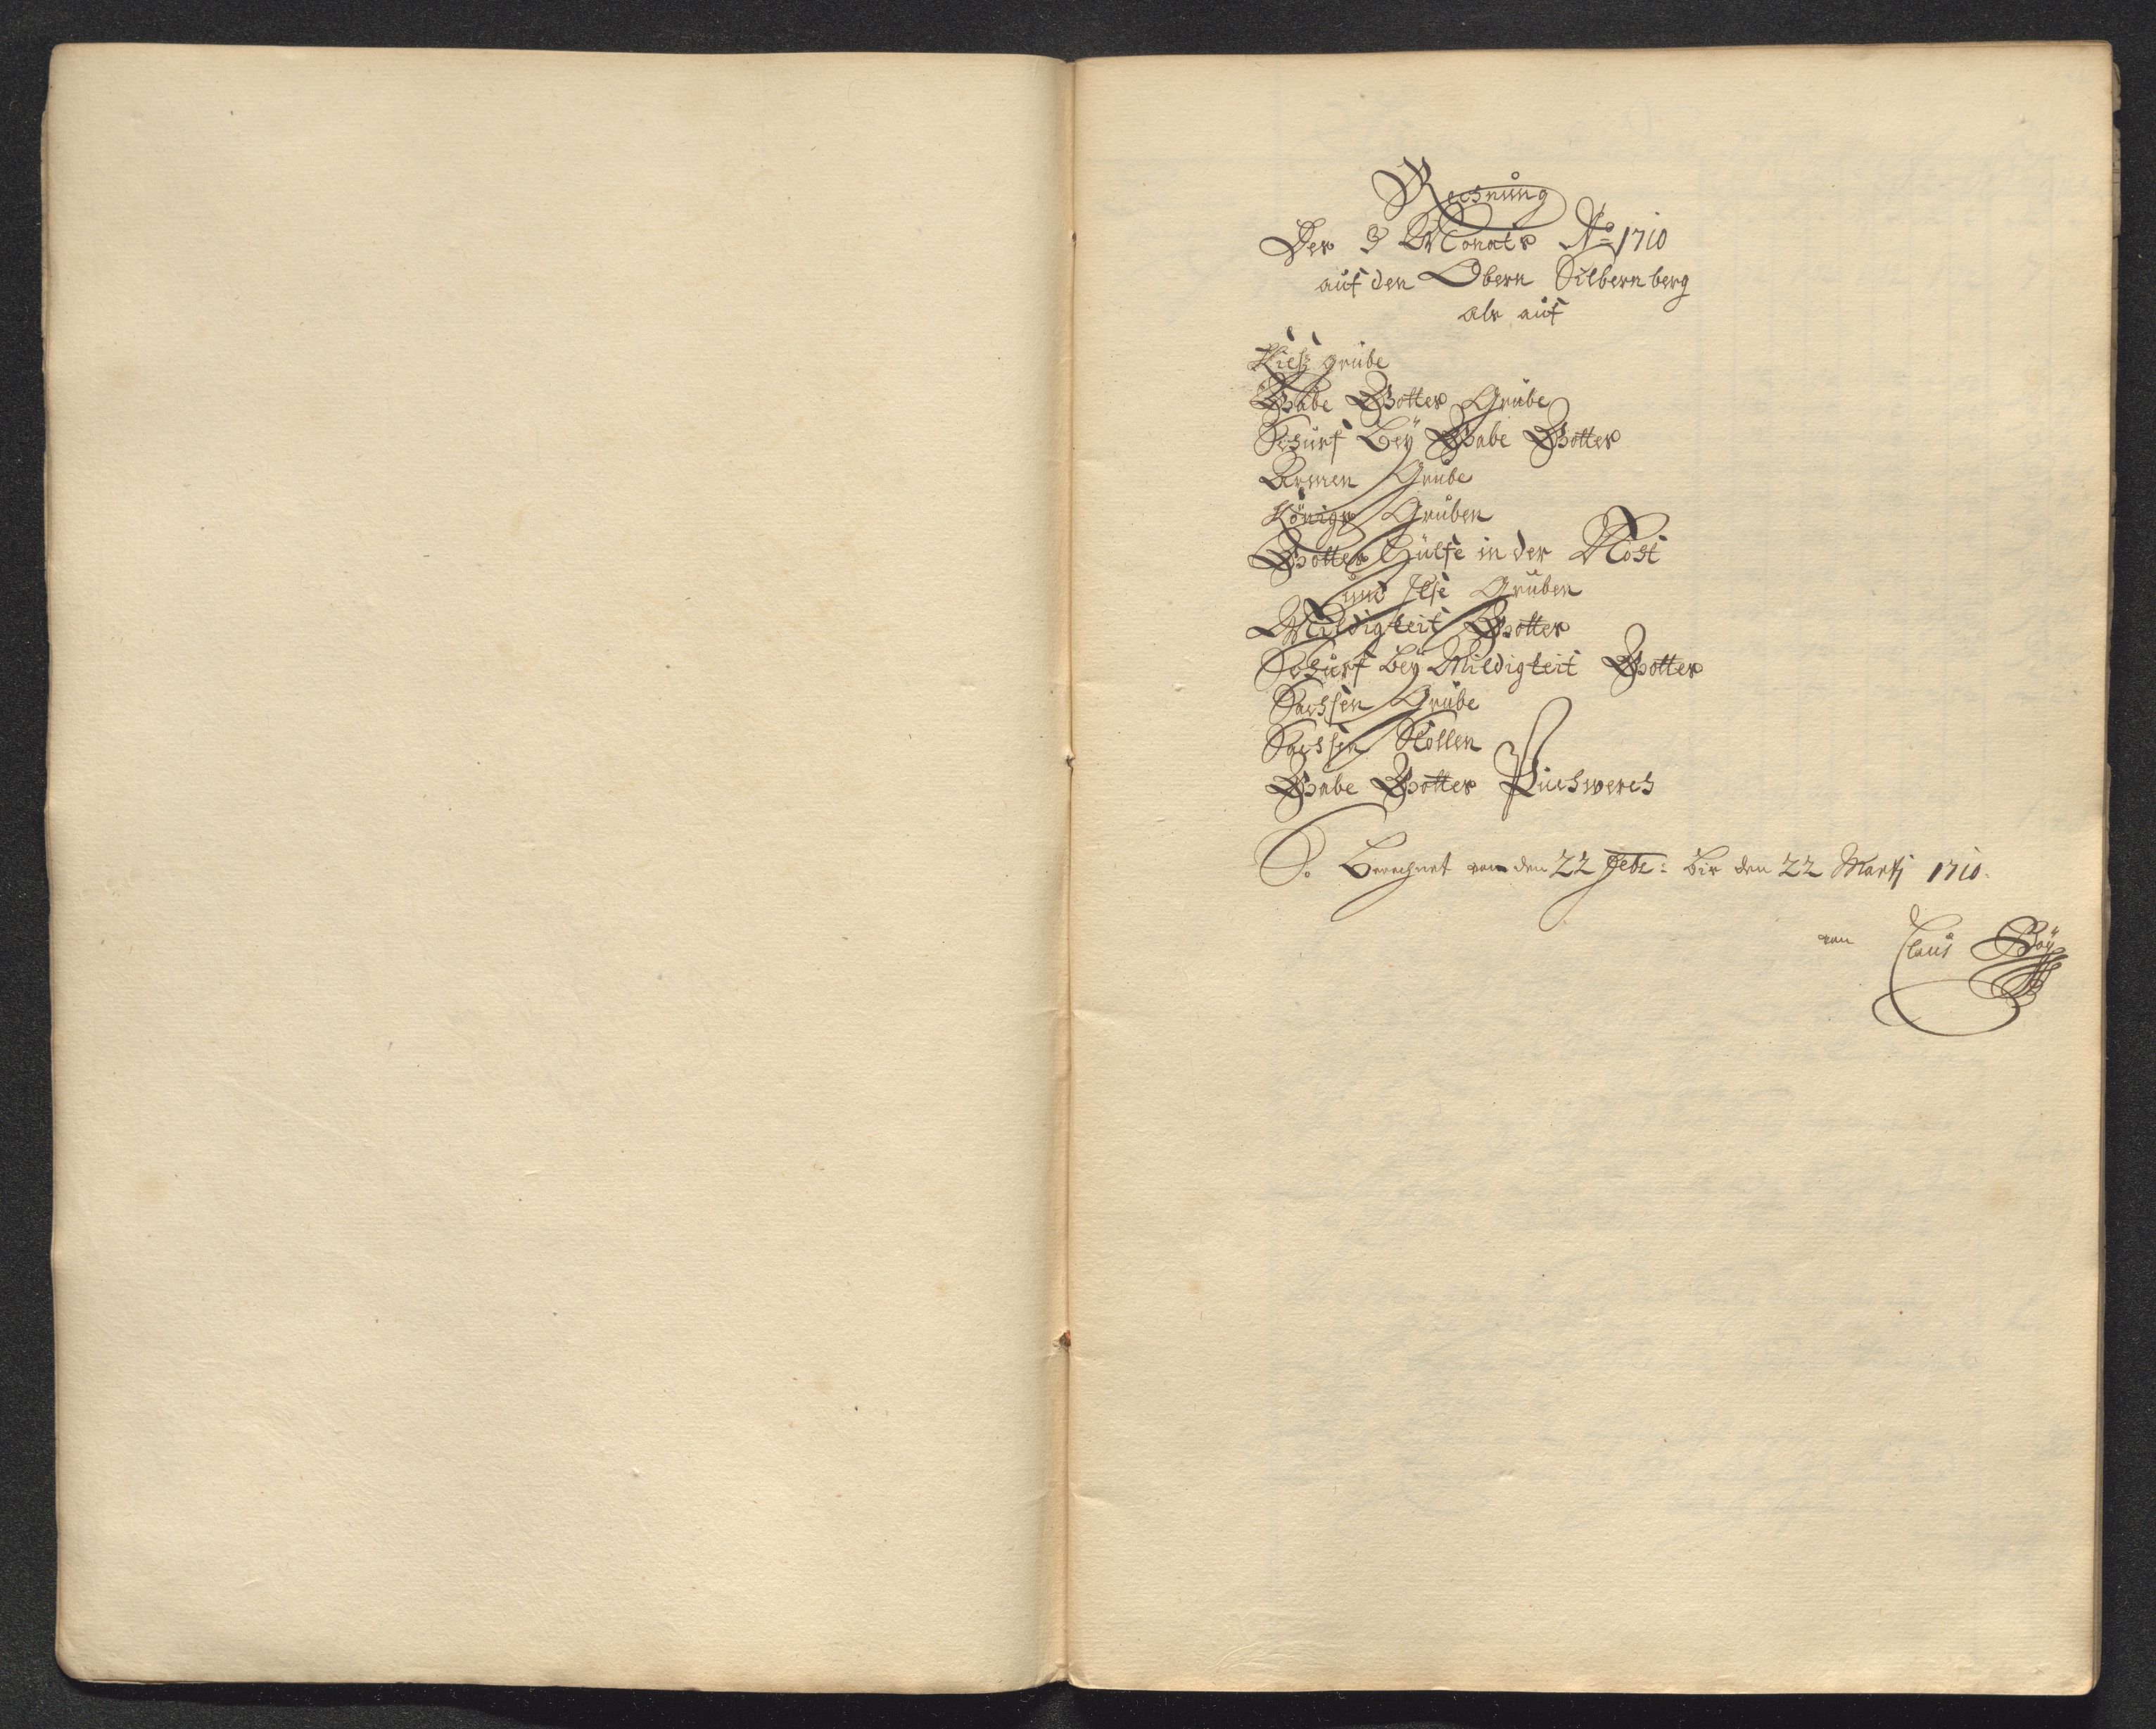 Rechnung
Des 3 Monats Ao 1710
auf den Obern Silbernberg
als auf
Kiesz grube
Gabe Gottes Grube
Schurf bey Gabe Gottes
Armen Grube
Königs Gruben
Gottes Hülfe in der Noht
und Ilse Gruben
Mildigkeit Gottes
Schurf bey Mildigkeit Gottes
Sachsen Grube
Sachsen Stollen
Gabe Gottes Puchwerch
So Berechnet von den 22 Feb: bis den 22 Martj 1710.
von Claus Boÿ